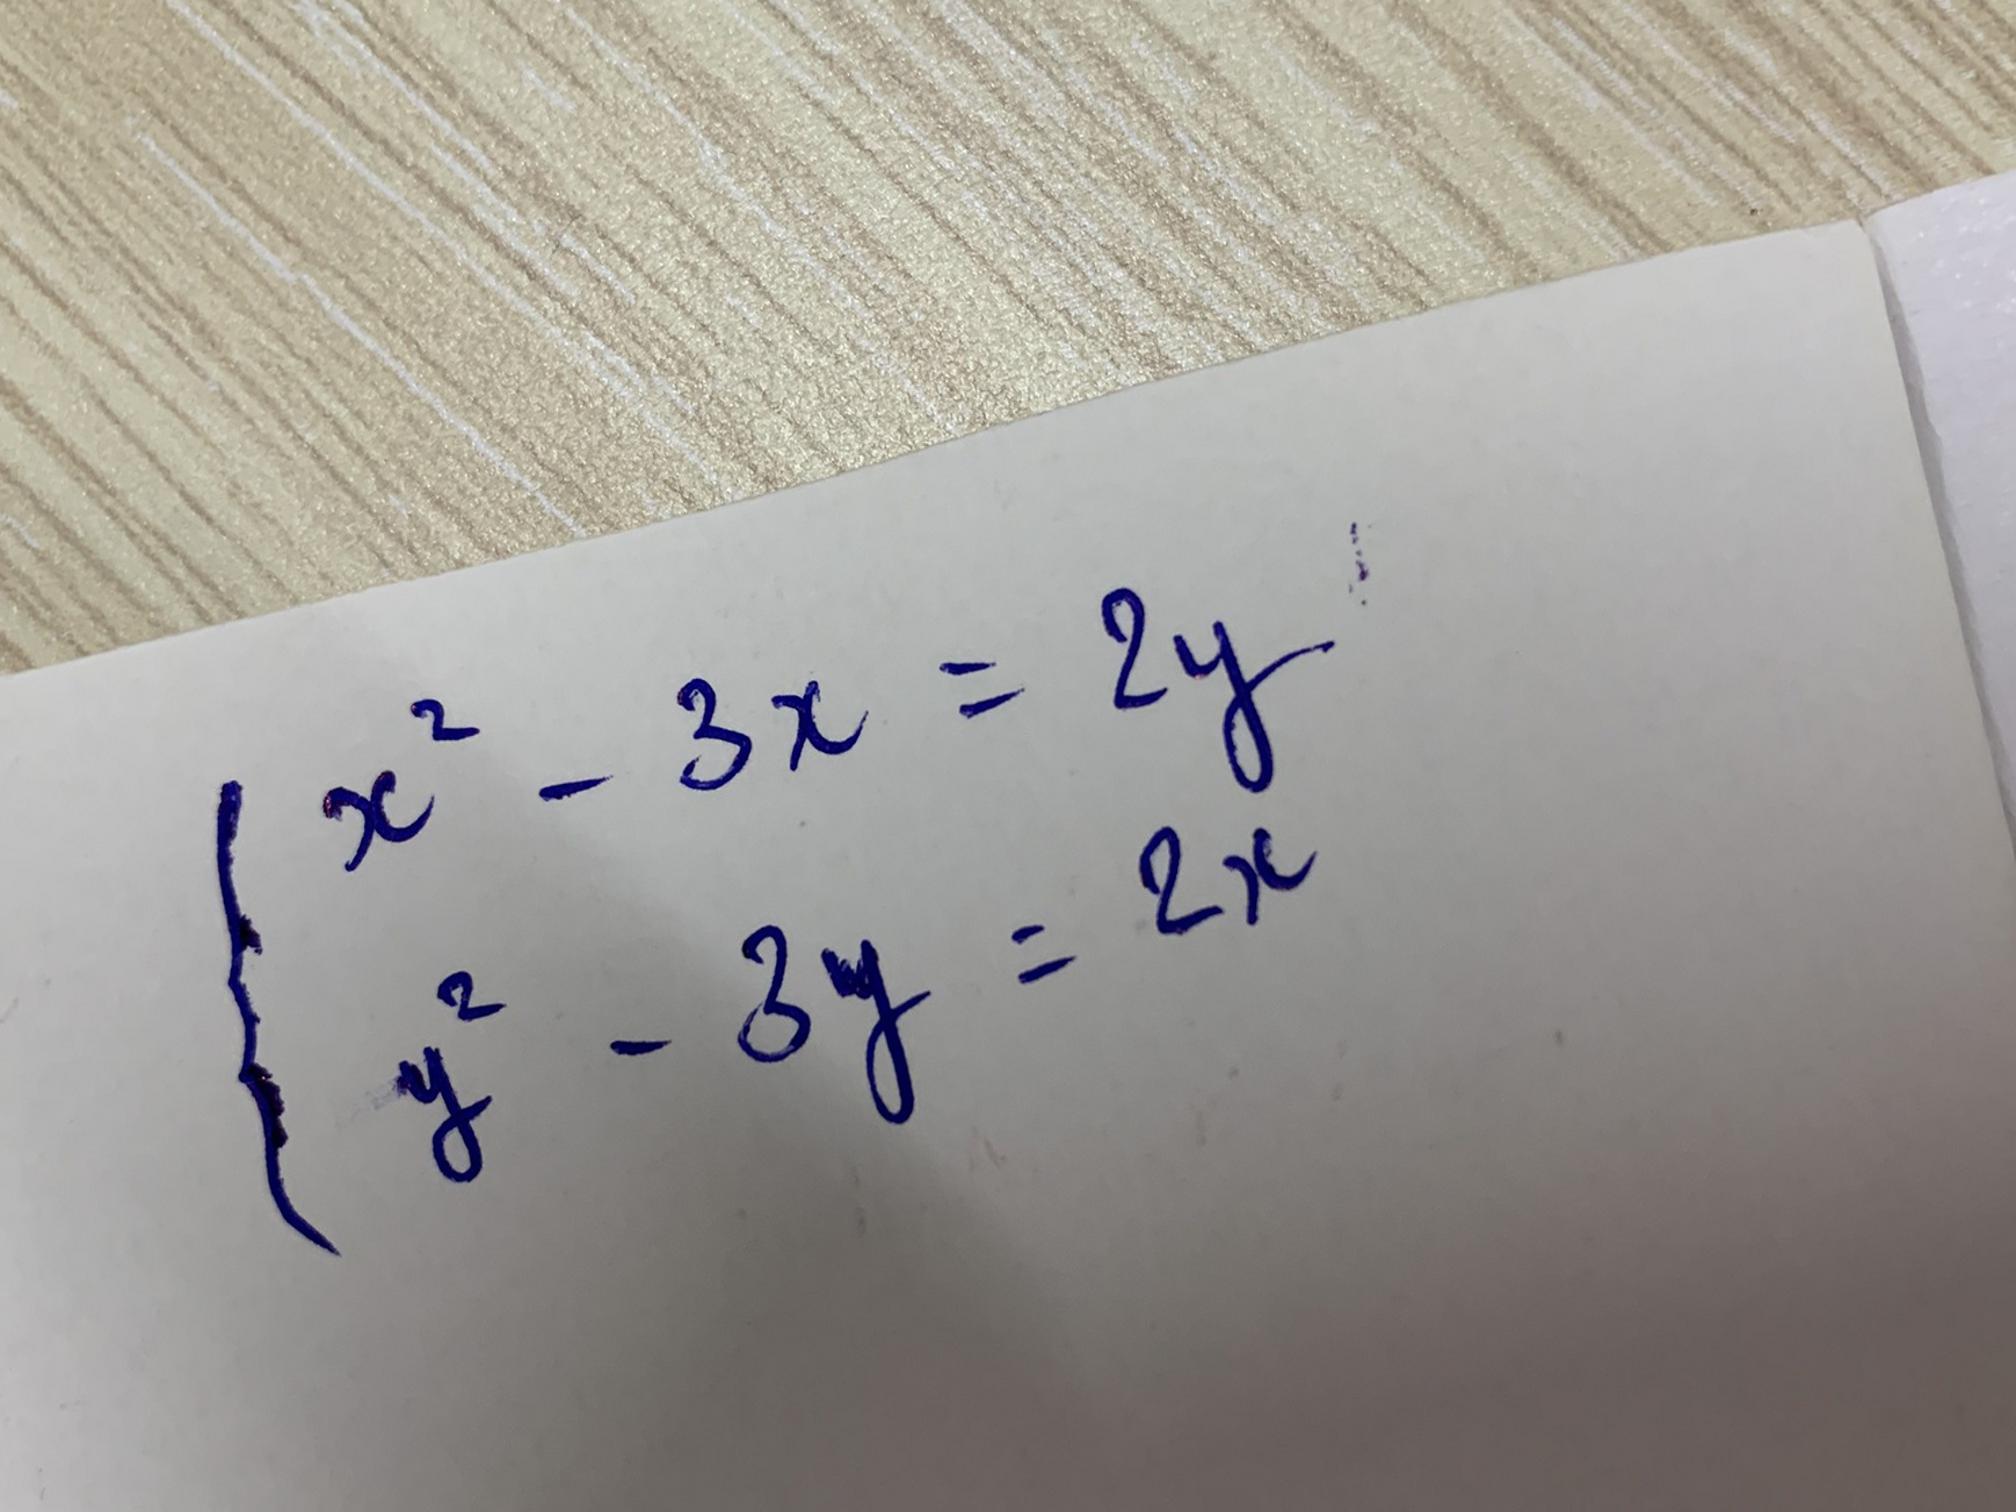 x² - 3x = 2y
y² - 3y = 2x